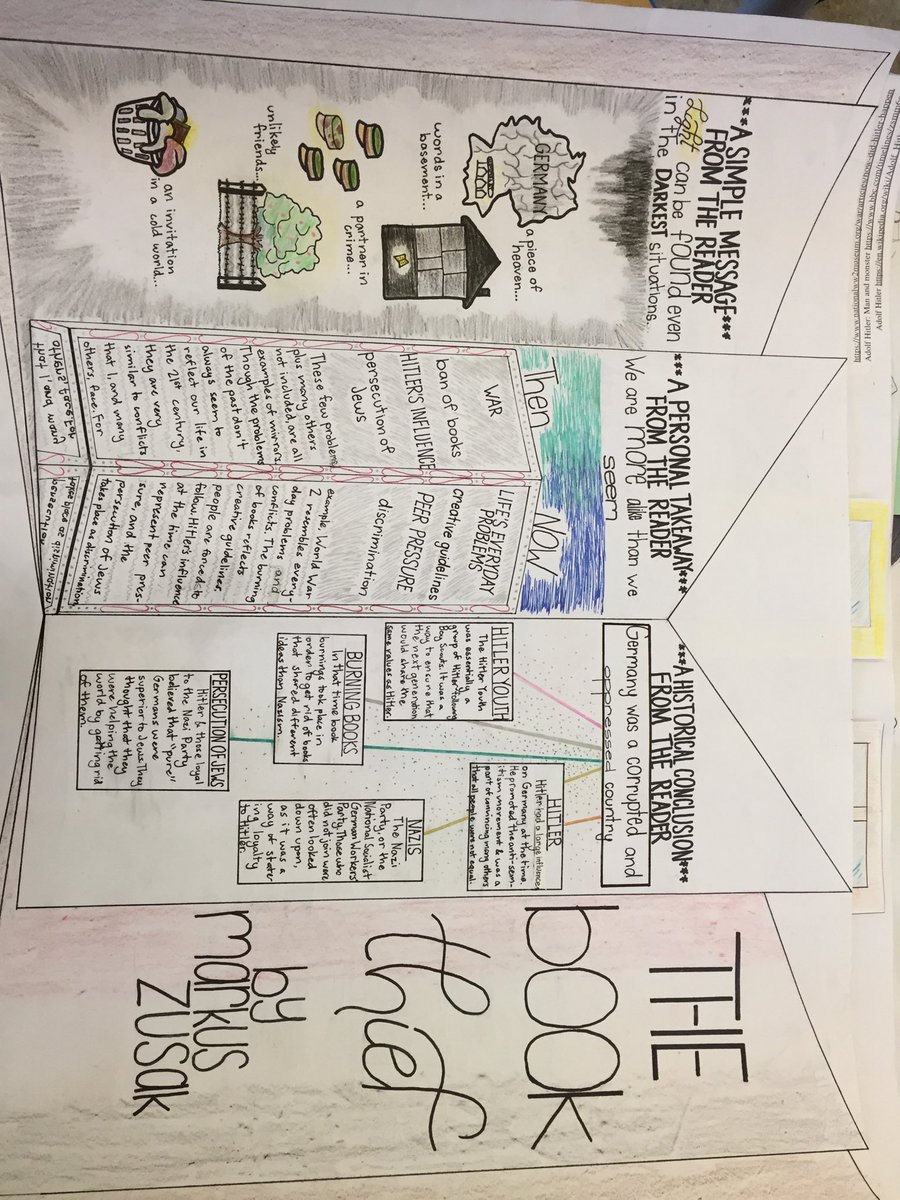 ***A SIMPLE MESSAGE***
FROM THE READER
Light can be found even
in the DARKEST situations...
GERMANY
a piece of
heaven...
words in a
basement...
a partner in
crime...
unlikely
friends...
an invitation
in a cold world...
***A PERSONAL TAKEAWAY***
FROM THE READER
We are more alike than we
seem
Then
WAR
ban of books
HITLER'S INFLUENCE
persecution of
Jews
These few problems
plus many others
not included, are all
examples of mirrors.
Though the problems
of the past don't
always seem to
reflect our life in
the 21st century,
they are very
similar to conflicts
that I, and many
others, face. For
NOW
LIFE'S EVERYDAY
PROBLEMS
creative guidelines
PEER PRESSURE
discrimination
example, World War
2 resembles every-
day problems and
conflicts. The burning
of books reflects
creative guidelines
people are forced to
follow. Hitler's influence
at the time can
represent peer pres-
sure, and the
persecution of Jews
takes place as discrimination
***A HISTORICAL CONCLUSION***
FROM THE READER
Germany was a corrupted and
oppressed country
HITLER YOUTH
The Hitler Youth
was essentially a
group of Hitler following
Boy Scouts. It was a
way to ensure that
the next generation
would share the
same values as Hitler.
HITLER
Hitler had a large influence
on Germany at the time.
He promoted the anti-sem-
itism movement & was a
part of convincing many others
that all people were not equal.
BURNING BOOKS
In that time book
burnings took place in
order to get rid of books
that shared different
ideas than Nazism.
NAZIS
The Nazi
Party, or the
National Socialist
German Workers'
Party. Those who
did not join were
often looked
down upon,
as it was a
way of stater
ing loyalty
to Hitler.
PERSECUTION OF JEWS
Hitler & those loyal
to the Nazi Party
believed that "pure"
Germans were
superior to Jews. They
thought that they
were helping the
world by getting rid
of them.
THE
book
thief
by
markus
zusak
Adolf Hitler
Adolf Hitler: Man and monster